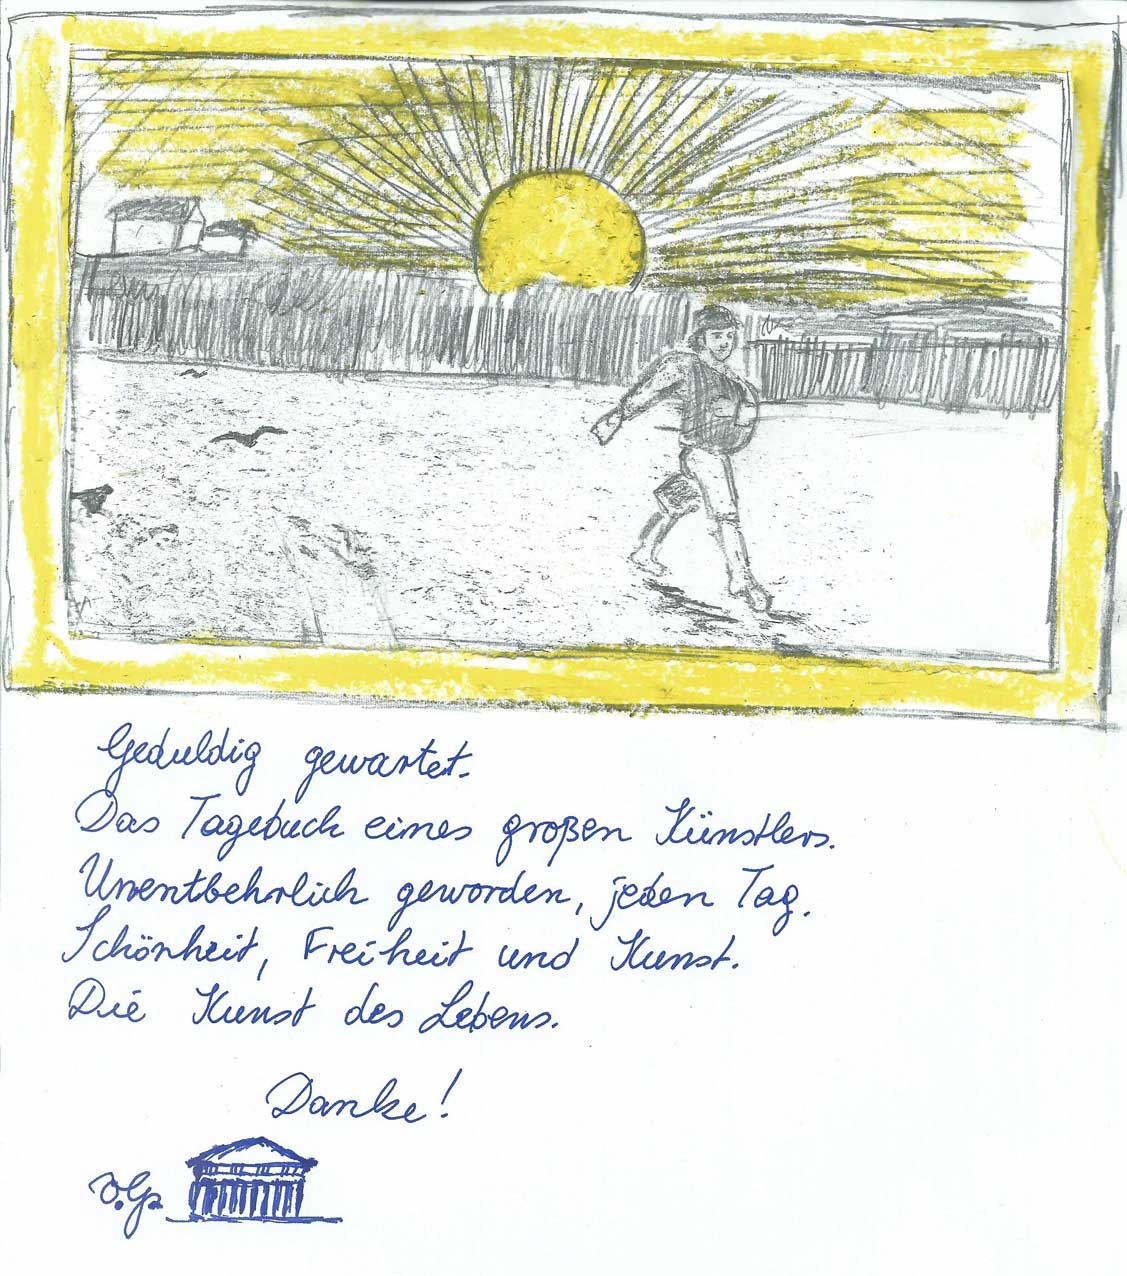 Geduldig gewartet.
Das Tagebuch eines großen Künstlers.
Unentbehrlich geworden, jeden Tag.
Schönheit, Freiheit und Kunst.
Die Kunst des Lebens.
Danke!